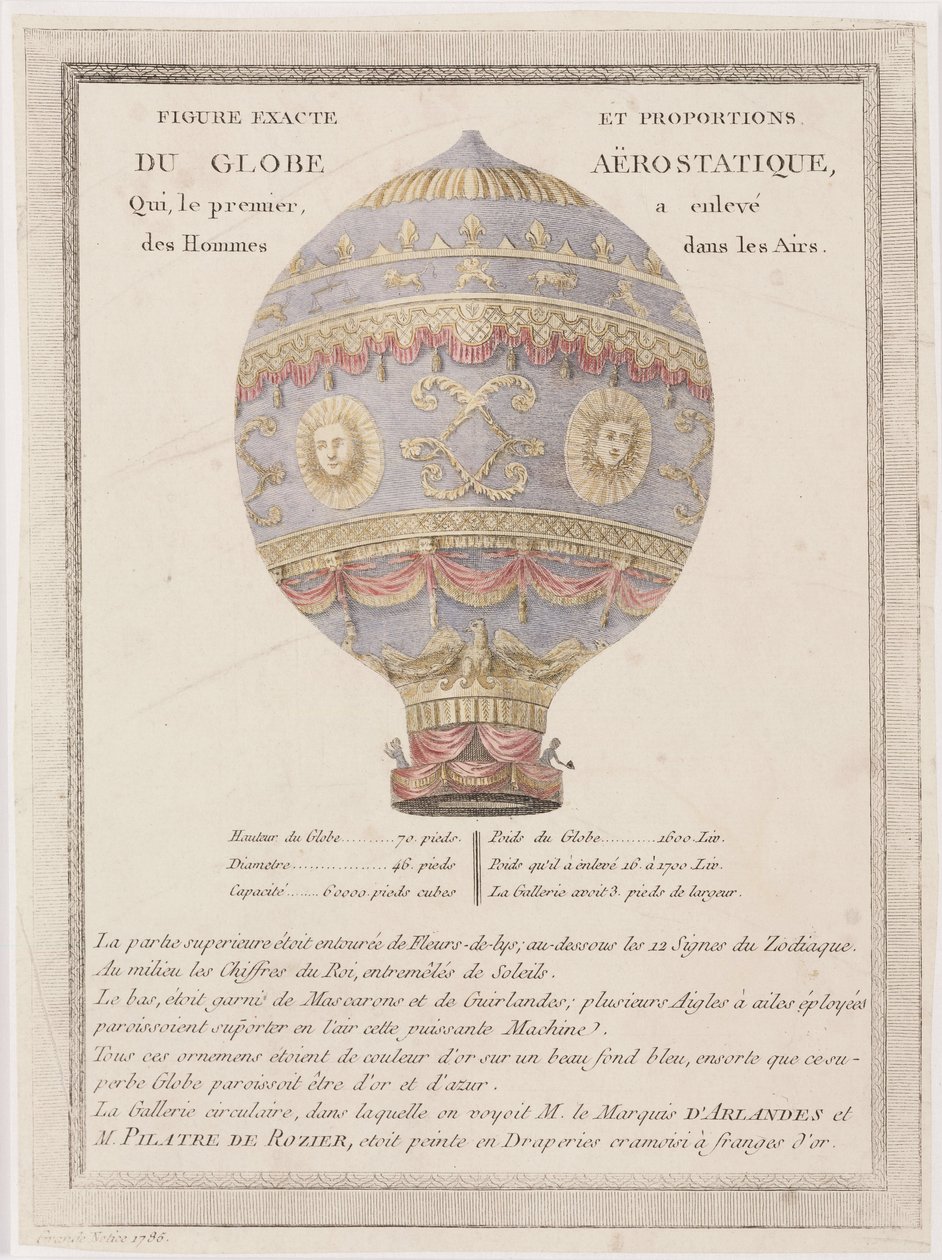 FIGURE EXACTE ET PROPORTIONS.
DU GLOBE AËROSTATIQUE,
Qui, le premier, a enlevé
des Hommes dans les Airs.
Hauteur du Globe..........70. pieds.
Diametre..................46. pieds
Capacité........60000. pieds cubes
Poids du Globe...........1600. Liv.
Poids qu'il à énlevé 16. à 1700. Liv.
La Gallerie avoit 3. pieds de largeur.
La partie superieure étoit entourée de Fleurs-de-lys; au-dessous les 12 Signes du Zodiaque.
Au milieu les Chiffres du Roi, entremêlés de Soleils.
Le bas, étoit garni de Mascarons et de Guirlandes; plusieurs Aigles à ailes éployées
paroissoient suporter en l'air cette puissante Machine.
Tous ces ornemens étoient de couleur d'or sur un beau fond bleu, ensorte que ce su-
perbe Globe paroissoit être d'or et d'azur.
La Gallerie circulaire, dans laquelle on voyoit M. le Marquis D'ARLANDES et
M. PILATRE DE ROZIER, etoit peinte en Draperies cramoisi à franges d'or.
Grande Notice 1786.